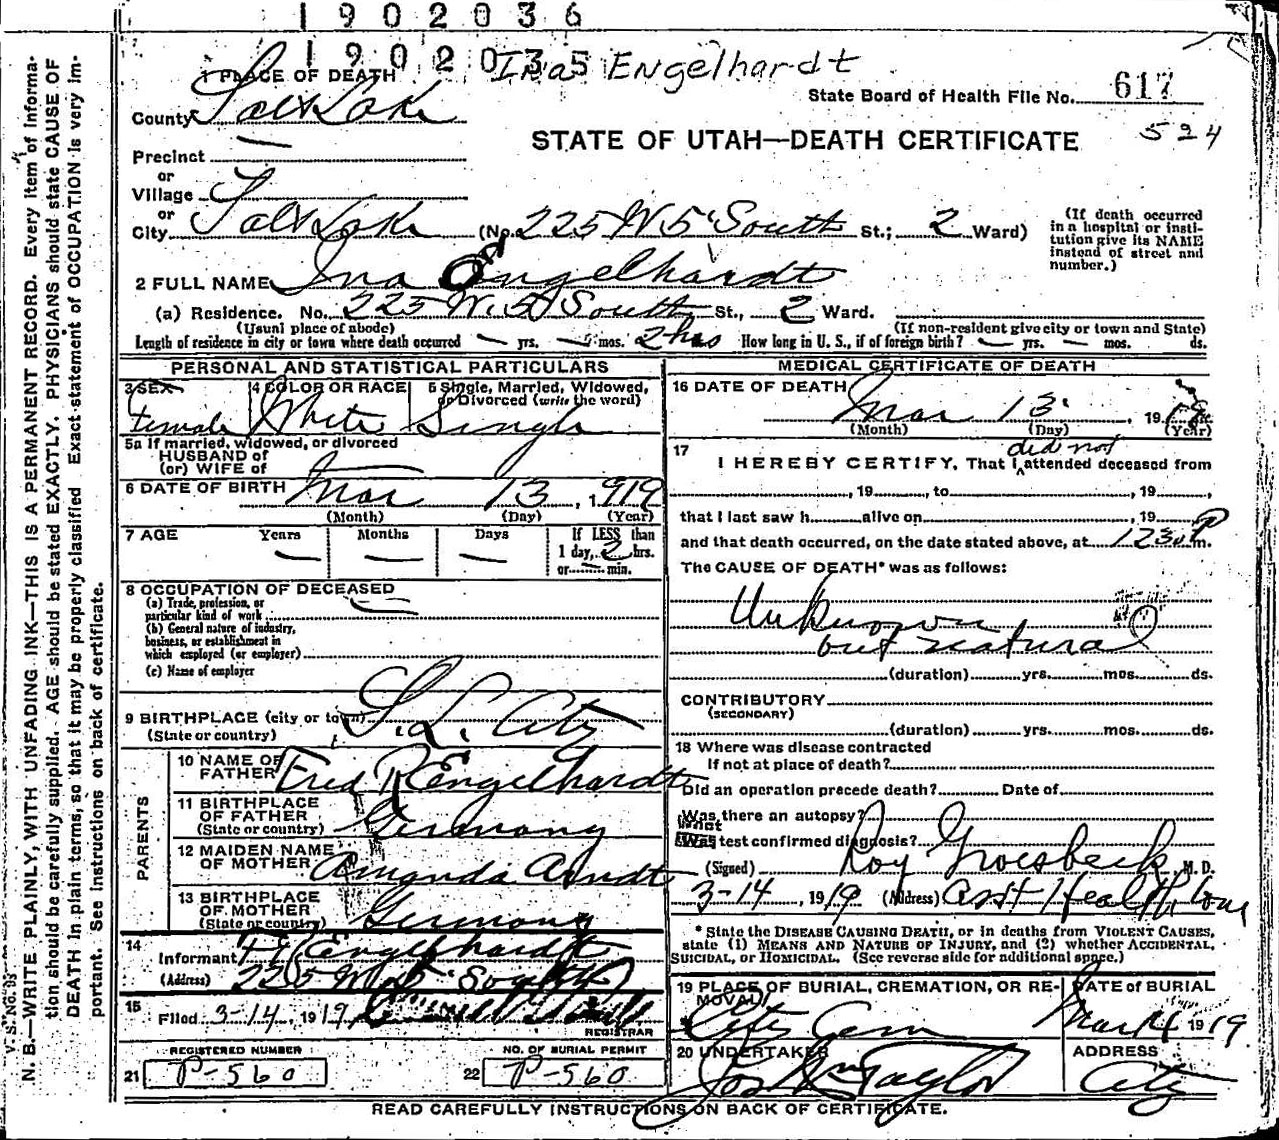 1902036
1902035
Ina Engelhardt
1 PLACE OF DEATH
County Salt Lake
State Board of Health File No. 617
524
STATE OF UTAH—DEATH CERTIFICATE
Precinct
or
Village
or
City Salt Lake (No. 225 W 5 South St.; 2 Ward)
(If death occurred in a hospital or institution give its NAME instead of street and number.)
2 FULL NAME Ina Engelhardt
(a) Residence. No. 225 W. 5 South St., 2 Ward.
(Usual place of abode) (If non-resident give city or town and State)
Length of residence in city or town where death occurred — yrs. — mos. 2 hrs How long in U. S., if of foreign birth? — yrs. — mos. ds.
PERSONAL AND STATISTICAL PARTICULARS
3 SEX Female
4 COLOR OR RACE White
5 Single, Married, Widowed, or Divorced (write the word) Single
5a If married, widowed, or divorced
HUSBAND of
(or) WIFE of —
6 DATE OF BIRTH Mar 13, 1919
(Month) (Day) (Year)
7 AGE Years — Months — Days — If LESS than 1 day, 2 hrs. or — min.
8 OCCUPATION OF DECEASED
(a) Trade, profession, or particular kind of work —
(b) General nature of industry, business, or establishment in which employed (or employer)
(c) Name of employer
9 BIRTHPLACE (city or town) S. L. City
(State or country)
PARENTS
10 NAME OF FATHER Fred R Engelhardt
11 BIRTHPLACE OF FATHER (State or country) Germany
12 MAIDEN NAME OF MOTHER Amanda Arndt
13 BIRTHPLACE OF MOTHER (State or country) Germany
14 Informant Engelhardt
(Address) 225 W 5 South
15 Filed 3-14, 1919
REGISTRAR
REGISTERED NUMBER
21 P-560
NO. OF BURIAL PERMIT
22 P-560
MEDICAL CERTIFICATE OF DEATH
16 DATE OF DEATH Mar 13, 19
(Month) (Day) (Year)
17 I HEREBY CERTIFY, That I did not attended deceased from
, 19 , to , 19 ,
that I last saw h alive on , 19
and that death occurred, on the date stated above, at 1230 P m.
The CAUSE OF DEATH* was as follows:
Unknown
but natural
(duration) yrs. mos. ds.
CONTRIBUTORY
(SECONDARY)
(duration) yrs. mos. ds.
18 Where was disease contracted
If not at place of death?
Did an operation precede death? Date of
Was there an autopsy?
What test confirmed diagnosis?
(Signed) Roy Groesbeck, M. D.
3-14, 1919 (Address) Asst Health Com
* State the DISEASE CAUSING DEATH, or in deaths from VIOLENT CAUSES,
state (1) MEANS AND NATURE OF INJURY, and (2) whether ACCIDENTAL,
SUICIDAL, or HOMICIDAL. (See reverse side for additional space.)
19 PLACE OF BURIAL, CREMATION, OR REMOVAL City Cem
DATE of BURIAL Mar 14 1919
20 UNDERTAKER Jos Wm Taylor
ADDRESS City
READ CAREFULLY INSTRUCTIONS ON BACK OF CERTIFICATE.
V. S. NO.
N. B.—WRITE PLAINLY, WITH UNFADING INK—THIS IS A PERMANENT RECORD. Every item of information should be carefully supplied. AGE should be stated EXACTLY. PHYSICIANS should state CAUSE OF DEATH in plain terms, so that it may be properly classified. Exact statement of OCCUPATION is very important. See instructions on back of certificate.